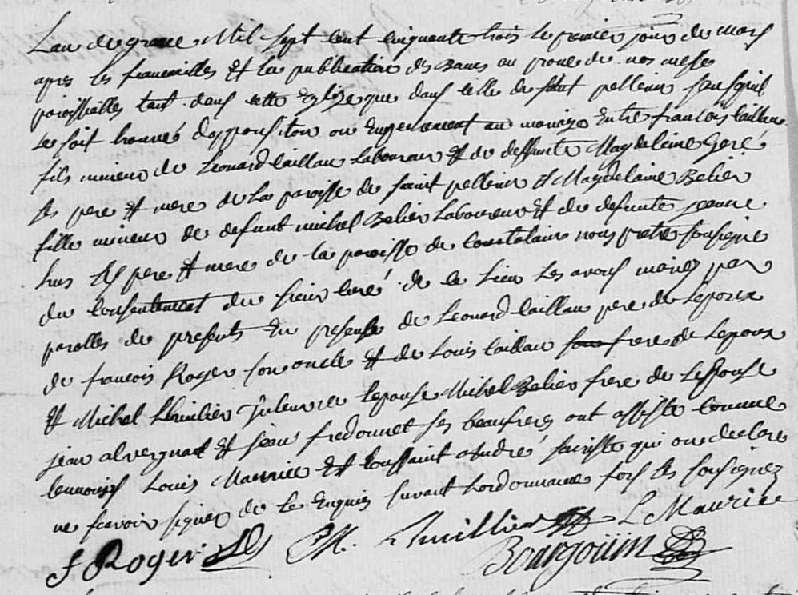 Lan de grace Mil sept cent cinquante trois le premier jour de mars
apres les fiancailles et la publication des Bans au prone de nos messes
paroissialles tant dans cette Eglise que dans celle de saint pellerin sans quil
se soit trouvé dopposition ou Enpechement au mariage Entre francois laillau
fils mineur de Léonard laillau Laboureur et de deffunte Magdelaine Geré
ses pere et mere de la paroisse de saint pellerin et Magdelaine Belier
fille mineur de defunt michel Belier Laboureur et de defunte jeanne
hus ses pere et mere de la paroisse de Courtalain nous pretre soussigne
du consentement du sieur curé de ce lieu les avons mariez par
parolles de presents En presense de Léonard laillau pere de Lepoux
de francois Roger son oncle et de Louis laillau frere de Lepoux
et Michel Lhuilier Lepouse Michel Belier frere de Lepouse
jean alvergnat et jean fredonnet ses beaufreres ont assisté comme
temoins Louis Maurice et toussaint andré sacriste qui ont declaré
ne scavoir signer de ce Enquis suivant Lordonnance fors les sousignez
f Roger M. Lhuillier L Maurice
Bourgouin